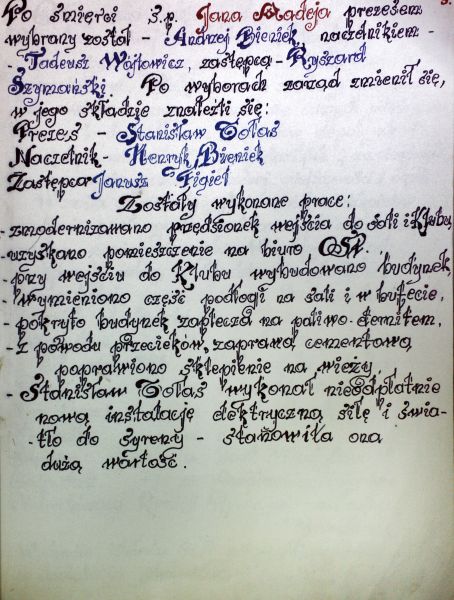 Po śmierci ś.p. Jana Madeja prezesem
wybrany został - Andrzej Bieniek, naczelnikiem -
- Tadeusz Wójtowicz, zastępca - Ryszard
Szymański. Po wyborach zarząd zmienił się,
w jego składzie znaleźli się:
Prezes - Stanisław Tołaś
Naczelnik - Henryk Bieniek
Zastępca Janusz Figiel
Zostały wykonane prace:
- zmodernizowano przedsionek wejścia do sali i Klubu,
- uzyskano pomieszczenie na biuro OSP.
- przy wejściu do Klubu wybudowano budynek,
- wymieniono część podłogi na sali i w bufecie,
- pokryto budynek zaplecza na paliwo - eternitem,
- z powodu przecieków, zaprawą cementową
poprawiono sklepienie na wieży,
- Stanisław Tołaś wykonał nieodpłatnie
nową instalację elektryczną siłę i świa-
tło do syreny - stanowiła ona
dużą wartość.